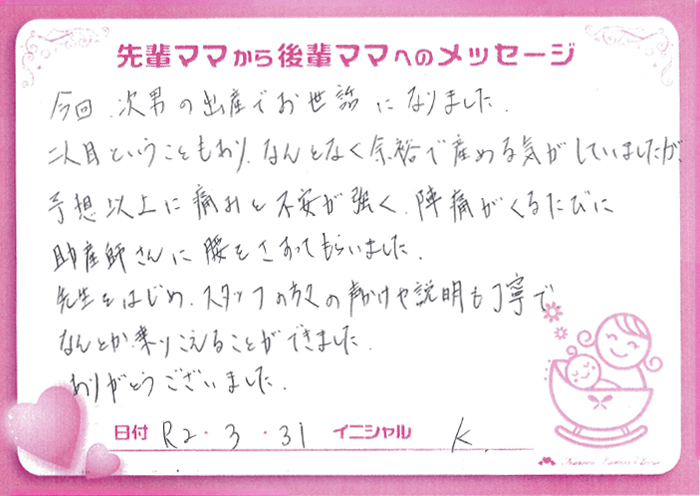 先輩ママから後輩ママへのメッセージ
今回、次男の出産でお世話になりました。
二人目ということもあり、なんとなく余裕で産める気がしていましたが、
予想以上に痛みと不安が強く、陣痛がくるたびに
助産師さんに腰をさすってもらいました。
先生をはじめ、スタッフの方々の声かけや説明も丁寧で
なんとか乗りこえることができました。
ありがとうございました。
日付 R2・3・31 イニシャル K.